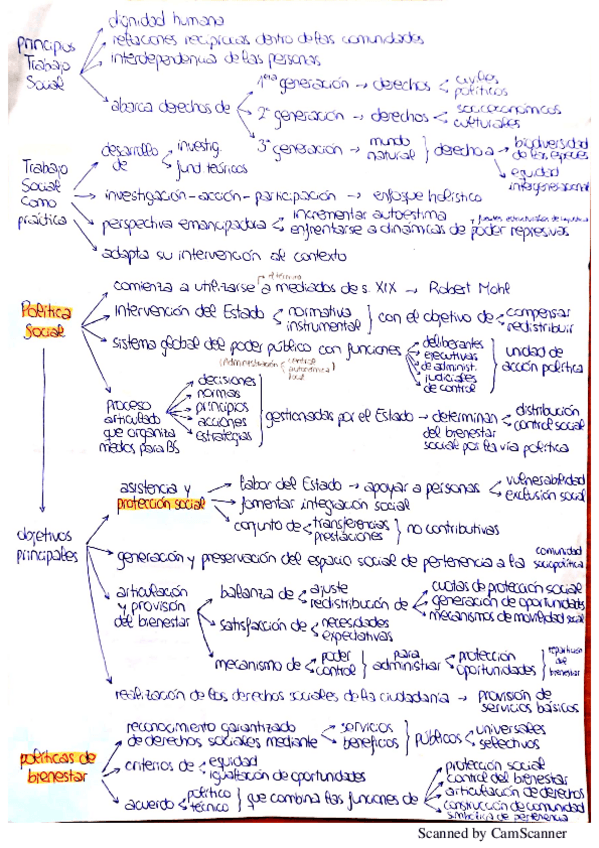 dignidad humana
principios Trabajo Social
relaciones recíprocas dentro de las comunidades
interdependencia de las personas
abarca derechos de
1era generación → derechos
civiles
políticos
2ª generación → derechos
socioeconómicos
culturales
3ª generación → mundo natural } derecho a
biodiversidad de las especies
equidad intergeneracional
Trabajo Social como práctica
desarrollo de
investig.
fund teóricos
investigación-acción-participación → enfoque holístico
perspectiva emancipadora
incrementar autoestima
enfrentarse a dinámicas de poder represivas
adapta su intervención al contexto
Política Social
comienza a utilizarse a mediados de s. XIX → Robert Mohl
el término
intervención del Estado
normativa
instrumental
} con el objetivo de
compensar
redistribuir
sistema global del poder público con funciones
deliberantes
ejecutivas
de administ.
judiciales
de control
} unidad de acción política
(Administración
central
autonómica
local
proceso articulado que organiza medios para BS
decisiones
normas
principios
acciones
estrategias
} gestionadas por el Estado → determinan
distribución
control social
del bienestar social por la vía política
objetivos principales
asistencia y protección social
labor del Estado → apoyar a personas
vulnerabilidad
exclusión social
fomentar integración social
conjunto de
transferencias
prestaciones
} no contributivas
generación y preservación del espacio social de pertenencia a la comunidad sociopolítica
articulación y provisión del bienestar
balanza de
ajuste
redistribución de
cuotas de protección social
generación de oportunidades
mecanismos de movilidad social
satisfacción de
necesidades
expectativas
mecanismo de
poder
control
} para administrar
protección
oportunidades
} repartición del bienestar
realización de los derechos sociales de la ciudadanía → provisión de servicios básicos
políticas de bienestar
reconocimiento garantizado de derechos sociales mediante
servicios
beneficios
} públicos
universales
selectivos
criterios de
equidad
igualación de oportunidades
acuerdo
político
técnico
} que combina las funciones de
protección social
control del bienestar
articulación de derechos
construcción de comunidad
simbólica de pertenencia
Scanned by CamScanner